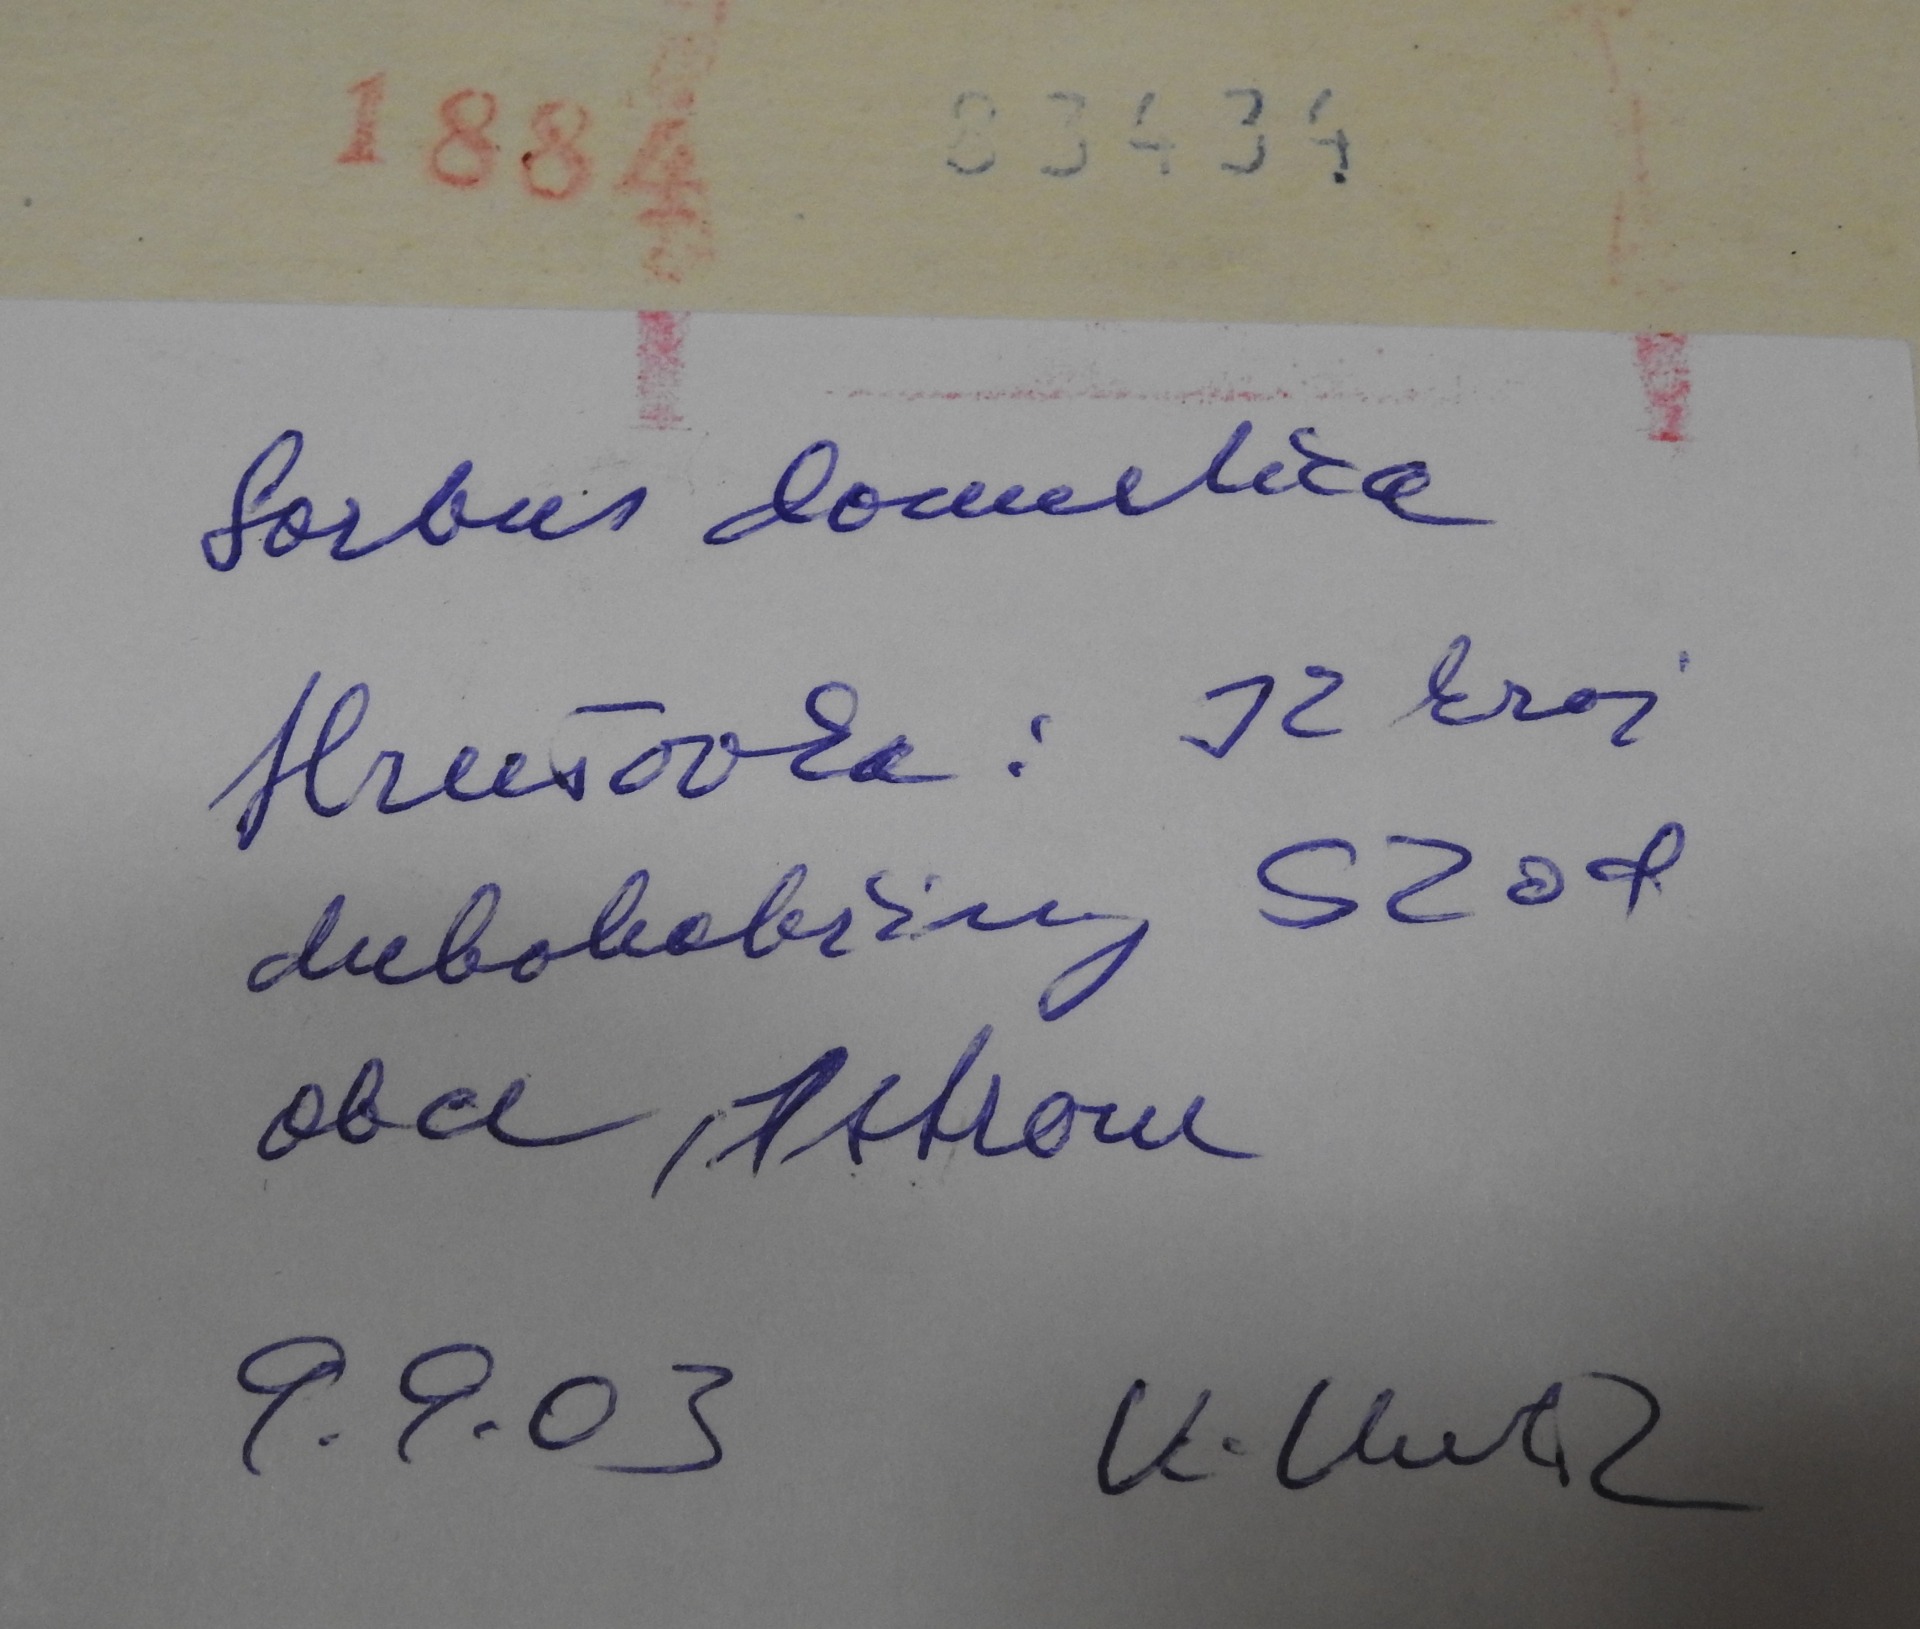 1884 83434
Sorbus domestica
Hrušovka: JZ kraj
dubohabřiny SZ od
obce, 1 strom
9.9.03